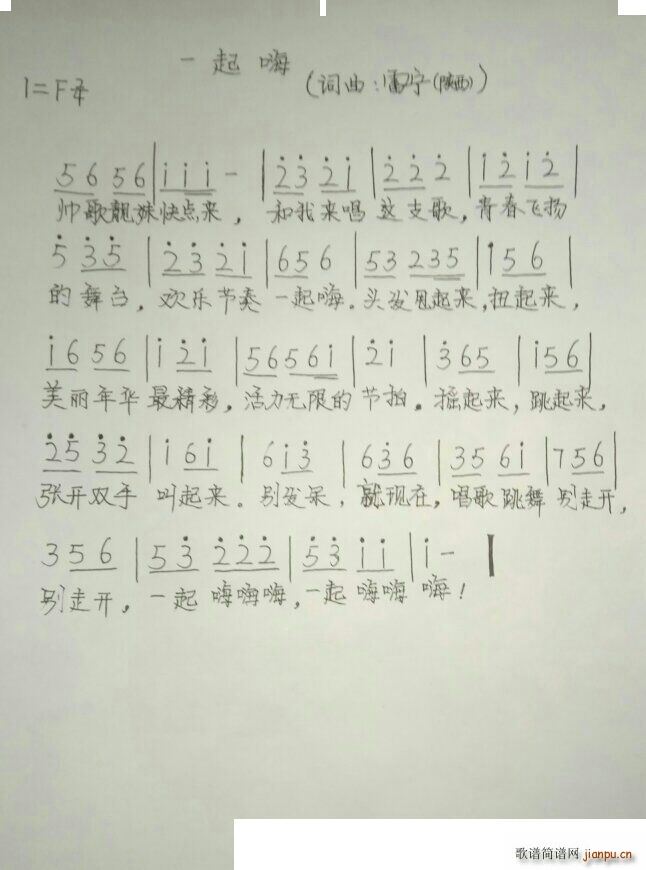 一起嗨
1=F 2/4
(词曲:雷宁(陕西))
5 6 5 6 | i i i - | 2̇ 3̇ 2̇ i | 2̇ 2̇ 2̇ | i 2̇ i 2̇ |
帅歌靓妹快点来, 和我来唱 这支歌,青春飞扬
5̇ 3̇ 5̇ | 2̇ 3̇ 2̇ i | 6 5 6 | 5 3 2 3 5 | i 5 6 |
的舞台, 欢乐节奏 一起嗨。头发甩起来,扭起来,
i 6 5 6 | i 2̇ i | 5 6 5 6 i | 2̇ i | 3̇ 6 5 | i 5 6 |
美丽年华 最精彩, 活力无限的 节拍。摇起来, 跳起来,
2̇ 5̇ 3̇ 2̇ | i 6 i | 6 i 3̇ | 6 3̇ 6 | 3 5 6 i | 7 5 6 |
张开双手 叫起来。别发呆, 就现在, 唱歌跳舞 别走开,
3 5 6 | 5 3̇ 2̇ 2̇ 2̇ | 5̇ 3̇ i i | i -
别走开, 一起 嗨嗨嗨, 一起 嗨嗨 嗨!
歌谱简谱网 jianpu.cn